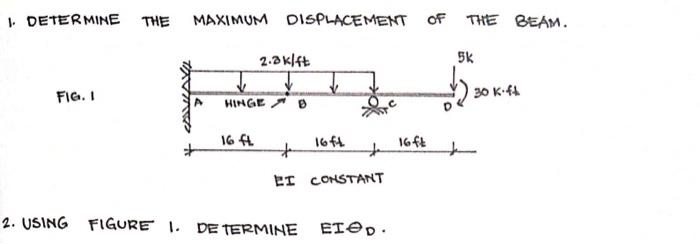 1. DETERMINE THE MAXIMUM DISPLACEMENT OF THE BEAM.
2.3k/ft
5k
FIG. 1
A HINGE B C D 30 K·ft
16 ft 16 ft 16 ft
EI CONSTANT
2. USING FIGURE 1. DETERMINE EIΘD.